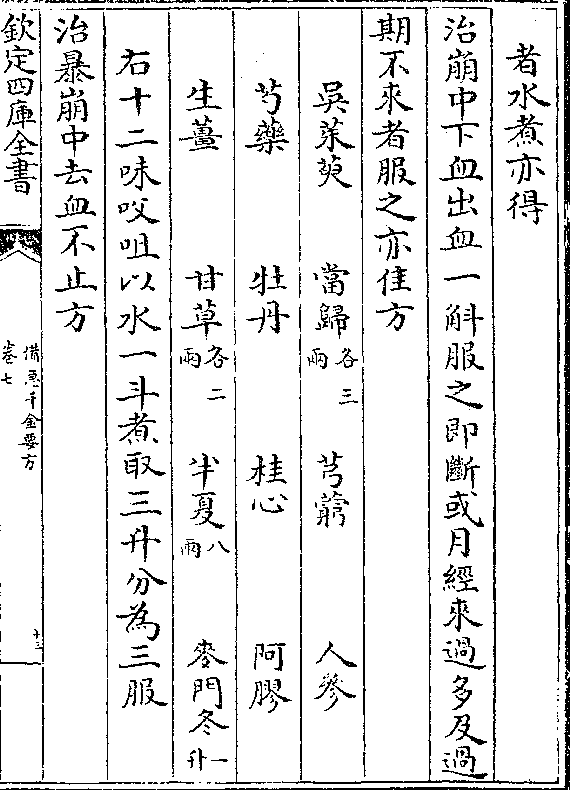 者水煮亦得
治崩中下血出血一斛服之即斷或月經來過多及過
期不來者服之亦佳方
吳茱萸 當歸各三兩 芎藭 人參
芍藥 牡丹 桂心 阿膠
生薑 甘草各二兩 半夏八兩 麥門冬一升
右十二味㕮咀以水一斗煮取三升分為三服
治暴崩中去血不止方
欽定四庫全書
備急千金要方
卷七
十三